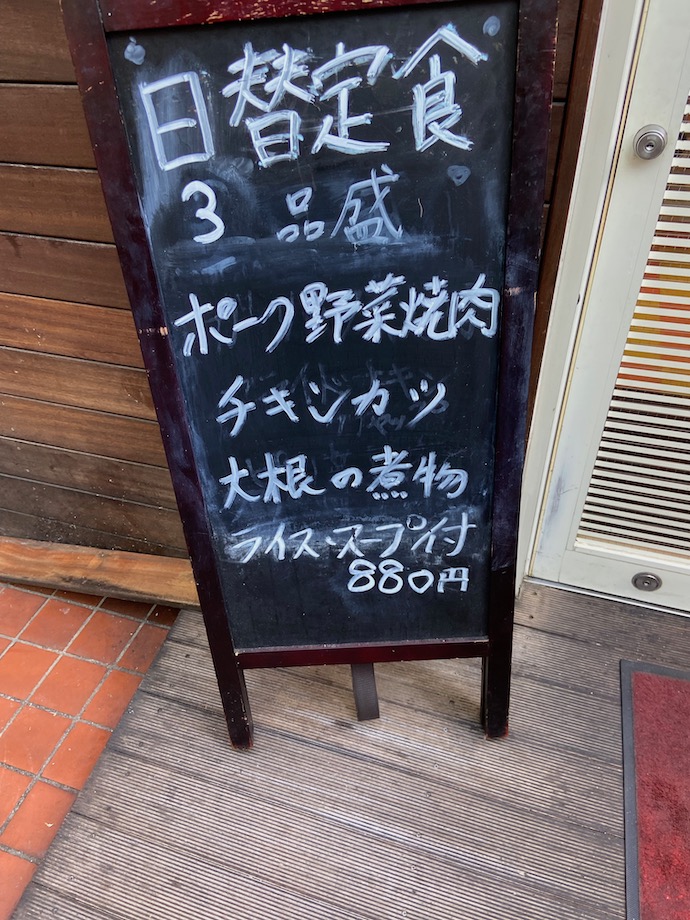 日替定食
3 品盛
ポーク野菜焼肉
チキンカツ
大根の煮物
ライス・スープ付
880円